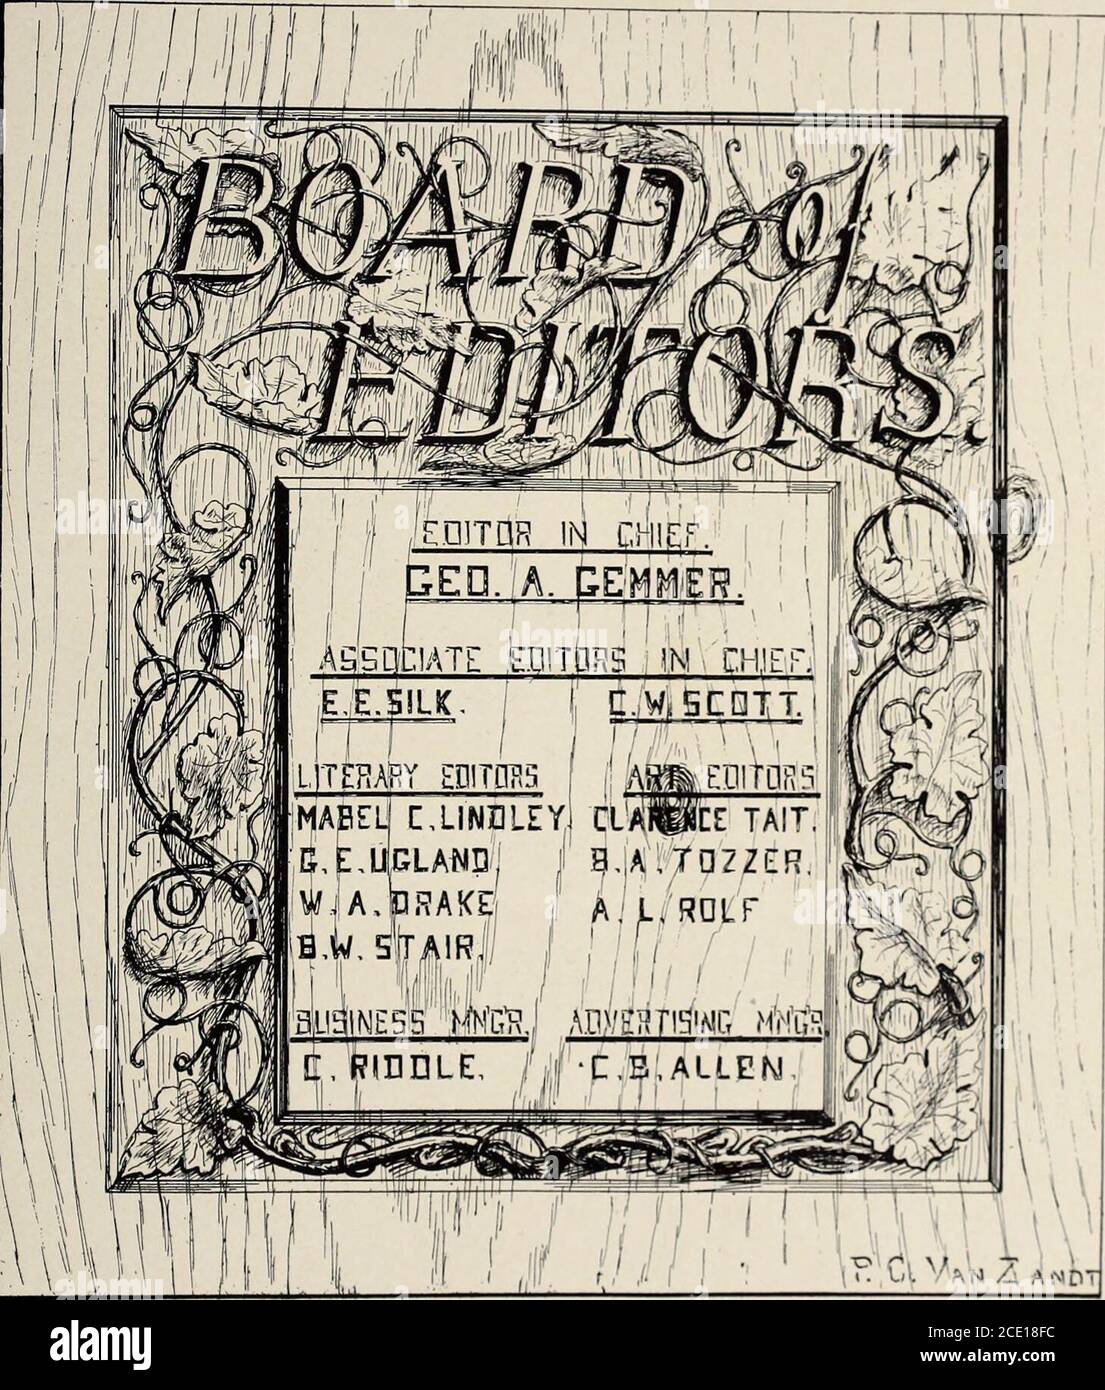 BOARD of
EDITORS.
EDITOR IN CHIEF.
GEO. A. GEMMER.
ASSOCIATE EDITORS IN CHIEF.
E.E.SILK. C.W.SCOTT.
LITERARY EDITORS ART EDITORS
MABEL C.LINDLEY. CLARENCE TAIT.
G.E.UGLAND. B.A.TOZZER.
W.A.DRAKE A.L.ROLF
B.W.STAIR.
BUSINESS MNG'R. ADVERTISING MNG'R.
C.RIDDLE. C.B.ALLEN.
P. C. VAN ZANDT
alamy
Image ID: 2CE18FC
www.alamy.com